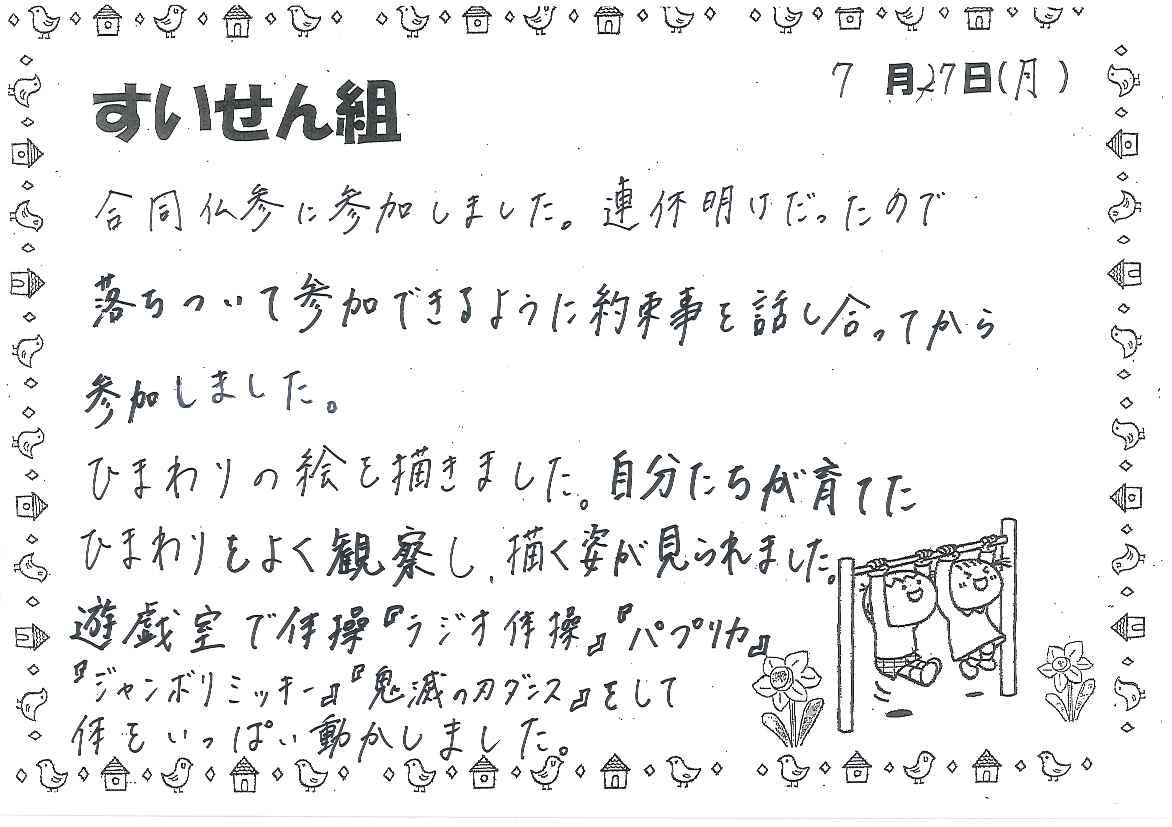 7月27日(月)
すいせん組
合同仏参に参加しました。連休明けだったので
落ちついて参加できるように約束事を話し合ってから
参加しました。
ひまわりの絵を描きました。自分たちが育てた
ひまわりをよく観察し、描く姿が見られました。
遊戯室で体操『ラジオ体操』『パプリカ』
『ジャンボリミッキー』『鬼滅の刃ダンス』をして
体をいっぱい動かしました。